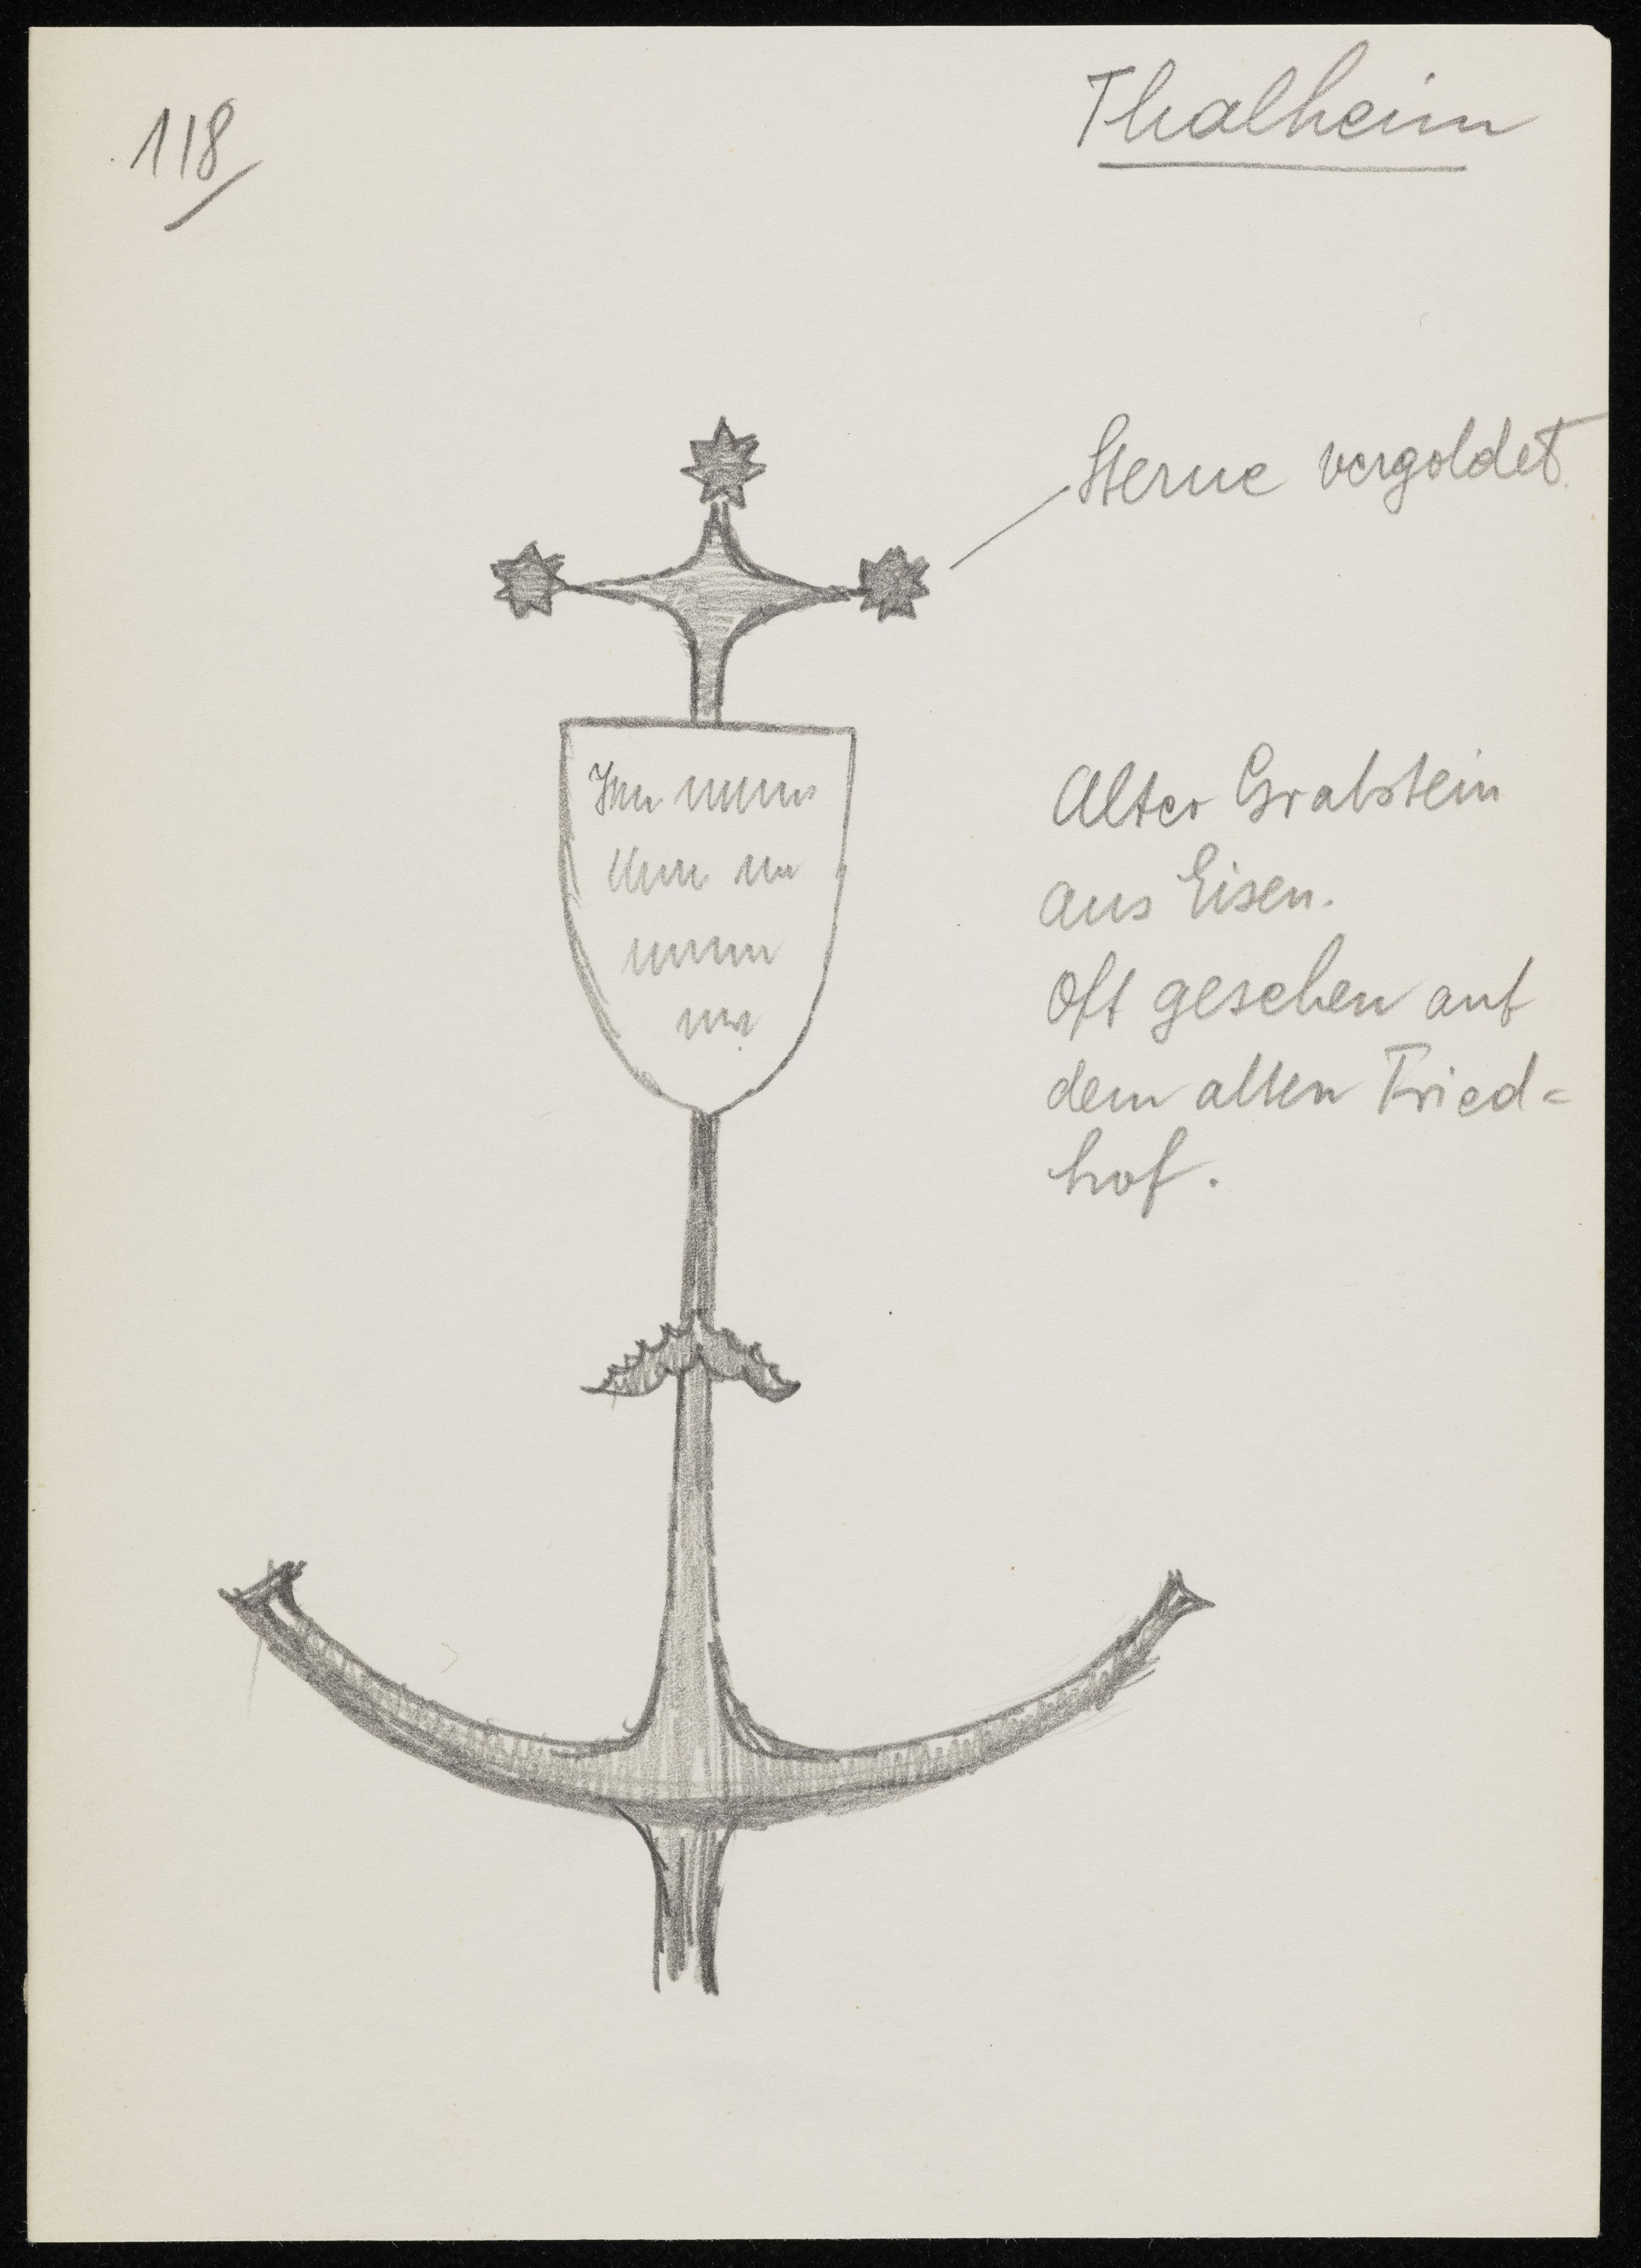 118
Thalheim
Sterne vergoldet.
Alter Grabstein
aus Eisen.
Oft gesehen auf
dem alten Fried=
hof.